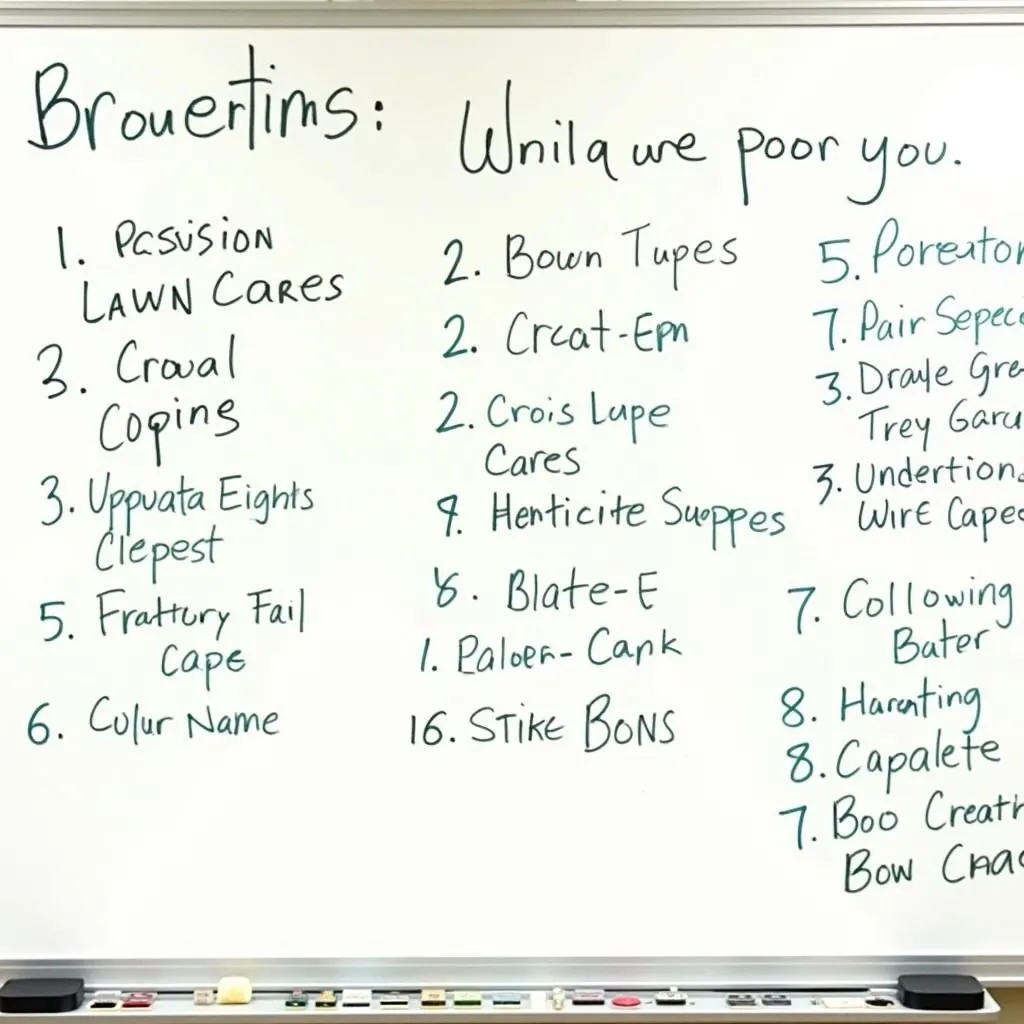 Brouertims:
Wnila we poor you.
1. Pcsvsion
Lawn Cares
3. Croual
Copins
3. Uppvata Eights
Clepest
5. Frattury Fail
Cape
6. Colur Name
2. Bown Tupes
2. Crcat-Epn
2. Crois Lupe
Cares
9. Henticite Suppes
8. Blate-E
1. Paloen-Cank
16. Stike Bons
5. Poreator
7. Pair Sepec
3. Draye Gre
Trey Garu
3. Undertion
Wire Cape
7. Collowing
Bater
8. Haranting
8. Capalete
7. Boo Creatr
Bow Chac